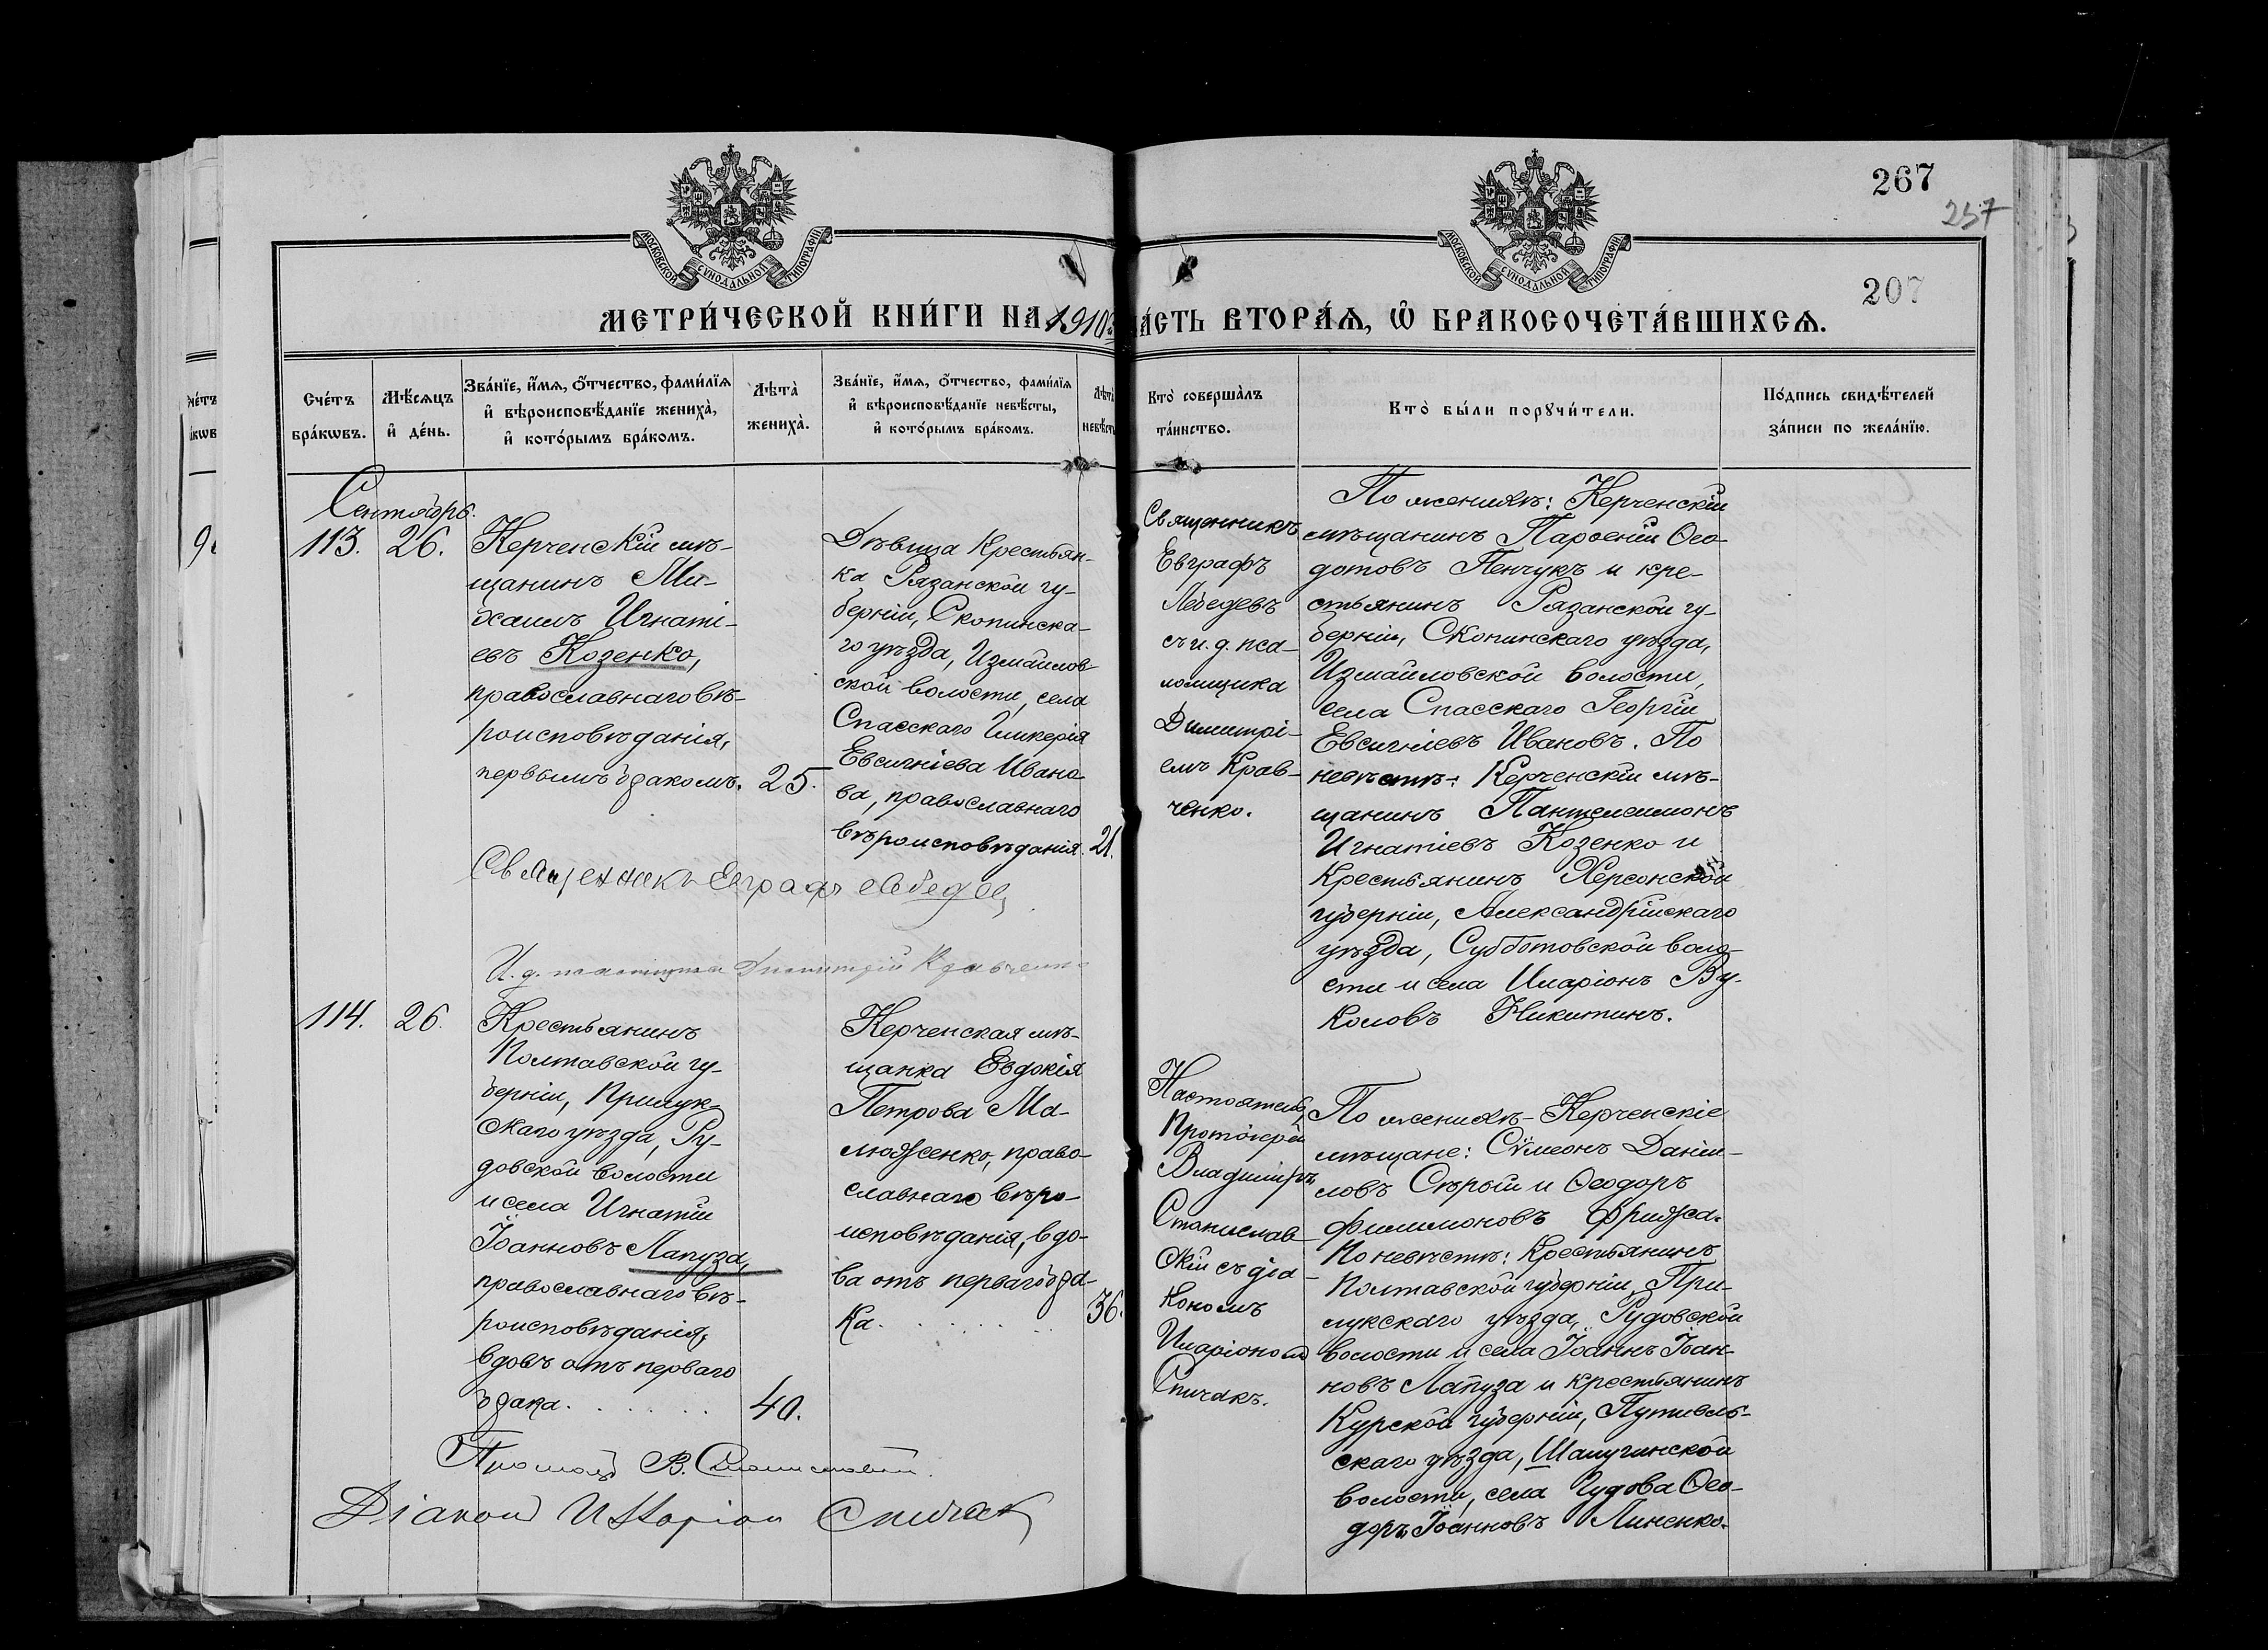 267
257
207
МОСКОВСКОЙ СУНОДАЛЬНОЙ ТИПОГРАФІИ
МОСКОВСКОЙ СУНОДАЛЬНОЙ ТИПОГРАФІИ
МЕТРИ́ЧЕСКОЙ КНИ́ГИ НА 1910
ЧА́СТЬ ВТОРА́Ѧ, Ѡ҆ БРАКОСОЧЕТА́ВШИХСѦ.
Сче́тъ бра́кѡвъ.
Мѣ́сѧцъ и҆ де́нь.
Зва́нїе, и҆́мѧ, ѻ҆́тчество, фами́лїѧ и҆ вѣроисповѣ́данїе жениха̀, и҆ кото́рымъ бра́комъ.
Лѣта̀ жениха̀.
Зва́нїе, и҆́мѧ, ѻ҆́тчество, фами́лїѧ и҆ вѣроисповѣ́данїе невѣ́сты, и҆ кото́рымъ бра́комъ.
Лѣта̀ невѣ́сты
Кто̀ соверша́лъ та́инство.
Кто̀ бы́ли порꙋчи́тели.
По́дпись свидѣ́телей за́писи по жела́нїю.
Сентябрь.
113.
26.
Керченскій мѣ-
щанинъ Ми-
хаилъ Игнаті-
евъ Козенко,
православнаго вѣ-
роисповѣданія,
первымъ бракомъ.
25.
Дѣвица крестьян-
ка Рязанской гу-
берніи, Скопинска-
го уѣзда, Измайлов-
ской волости, села
Спасскаго Гликерія
Евсигніева Ивано-
ва, православнаго
вѣроисповѣданія.
21.
Священникъ
Евграфъ
Лебедевъ
съ и. д. пса-
ломщика
Димитрі-
емъ Крав-
ченко.
По женихѣ: Керченскій
мѣщанинъ Парѳеній Ѳео-
дотовъ Пенчукъ и кре-
стьянинъ Рязанской гу-
берніи, Скопинскаго уѣзда,
Измайловской волости,
села Спасскаго Георгій
Евсигніевъ Ивановъ. По
невѣстѣ: Керченскій мѣ-
щанинъ Пантелеимонъ
Игнатіевъ Козенко и
крестьянинъ Херсонской
губерніи, Александрійскаго
уѣзда, Субботовской воло-
сти и села Иларіонъ Ву-
коловъ Никитинъ.
Священникъ Евграфъ Лебедев
И. д. псаломщика Димитрій Кравченко
114.
26.
Крестьянинъ
Полтавской гу-
берніи, Прилук-
скаго уѣзда, Ру-
довской волости
и села Игнатій
Іоанновъ Лапуза,
православнаго вѣ-
роисповѣданія,
вдовъ отъ перваго
брака.
40.
Керченская мѣ-
щанка Евдокія
Петрова Ма-
люженко, право-
славнаго вѣро-
исповѣданія, вдо-
ва отъ перваго бра-
ка.
36.
Настоятель,
Протоіерей
Владиміръ
Станислав-
скій съ діа-
кономъ
Иларіономъ
Спичакъ.
По женихѣ - Керченскіе
мѣщане: Сѵмеонъ Даніи-
ловъ Сѣрый и Ѳеодоръ
Филимоновъ Фрижа.
По невѣстѣ: Крестьянинъ
Полтавской губерніи, При-
лукскаго уѣзда, Рудовской
волости и села Іоаннъ Іоан-
новъ Лапуза и крестьянинъ
Курской губерніи, Путивль-
скаго уѣзда, Шалугинской
волости, села Чудова Ѳео-
доръ Іоанновъ Линенко.
В. Станиславскій.
Діаконъ Иларіон Спичак